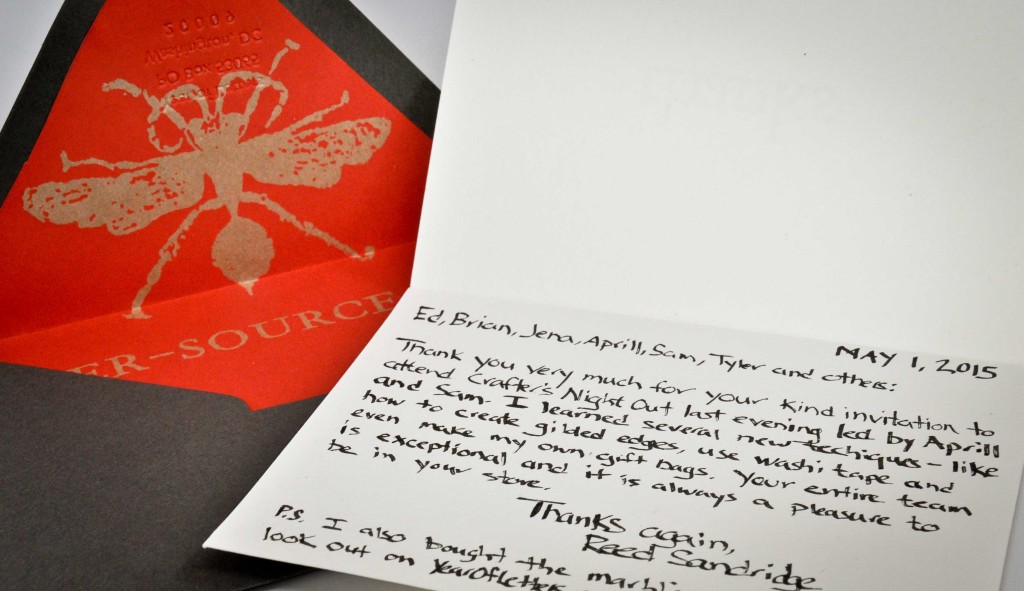 20009
Washington, DC
PO Box 53065
ER-SOURCE
MAY 1, 2015
Ed, Brian, Jena, Aprill, Sam, Tyler and others:
Thank you very much for your kind invitation to
attend Crafter's Night Out last evening led by Aprill
and Sam. I learned several new techiques - like
how to create gilded edges, use washi tape and
even make my own gift bags. Your entire team
is exceptional and it is always a pleasure to
be in your store.
Thanks again,
Reed Sandridge
P.S. I also bought the marbli
look out on YearOfLetters